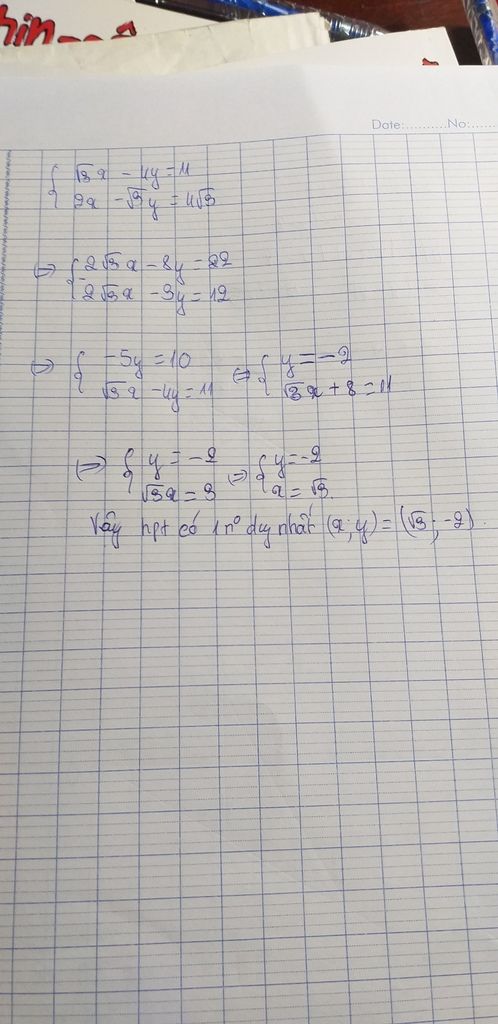 hin
Date:..........No:......
{ √3x - 4y = 11
2x - √3y = 4√3
⇔ { 2√3x - 8y = 22
2√3x - 3y = 12
⇔ { -5y = 10 ⇔ { y = -2
√3x - 4y = 11 √3x + 8 = 11
⇔ { y = -2 ⇔ { y = -2
√3x = 3 x = √3
Vậy hpt có 1 n⁰ duy nhất (x; y) = (√3; -2).